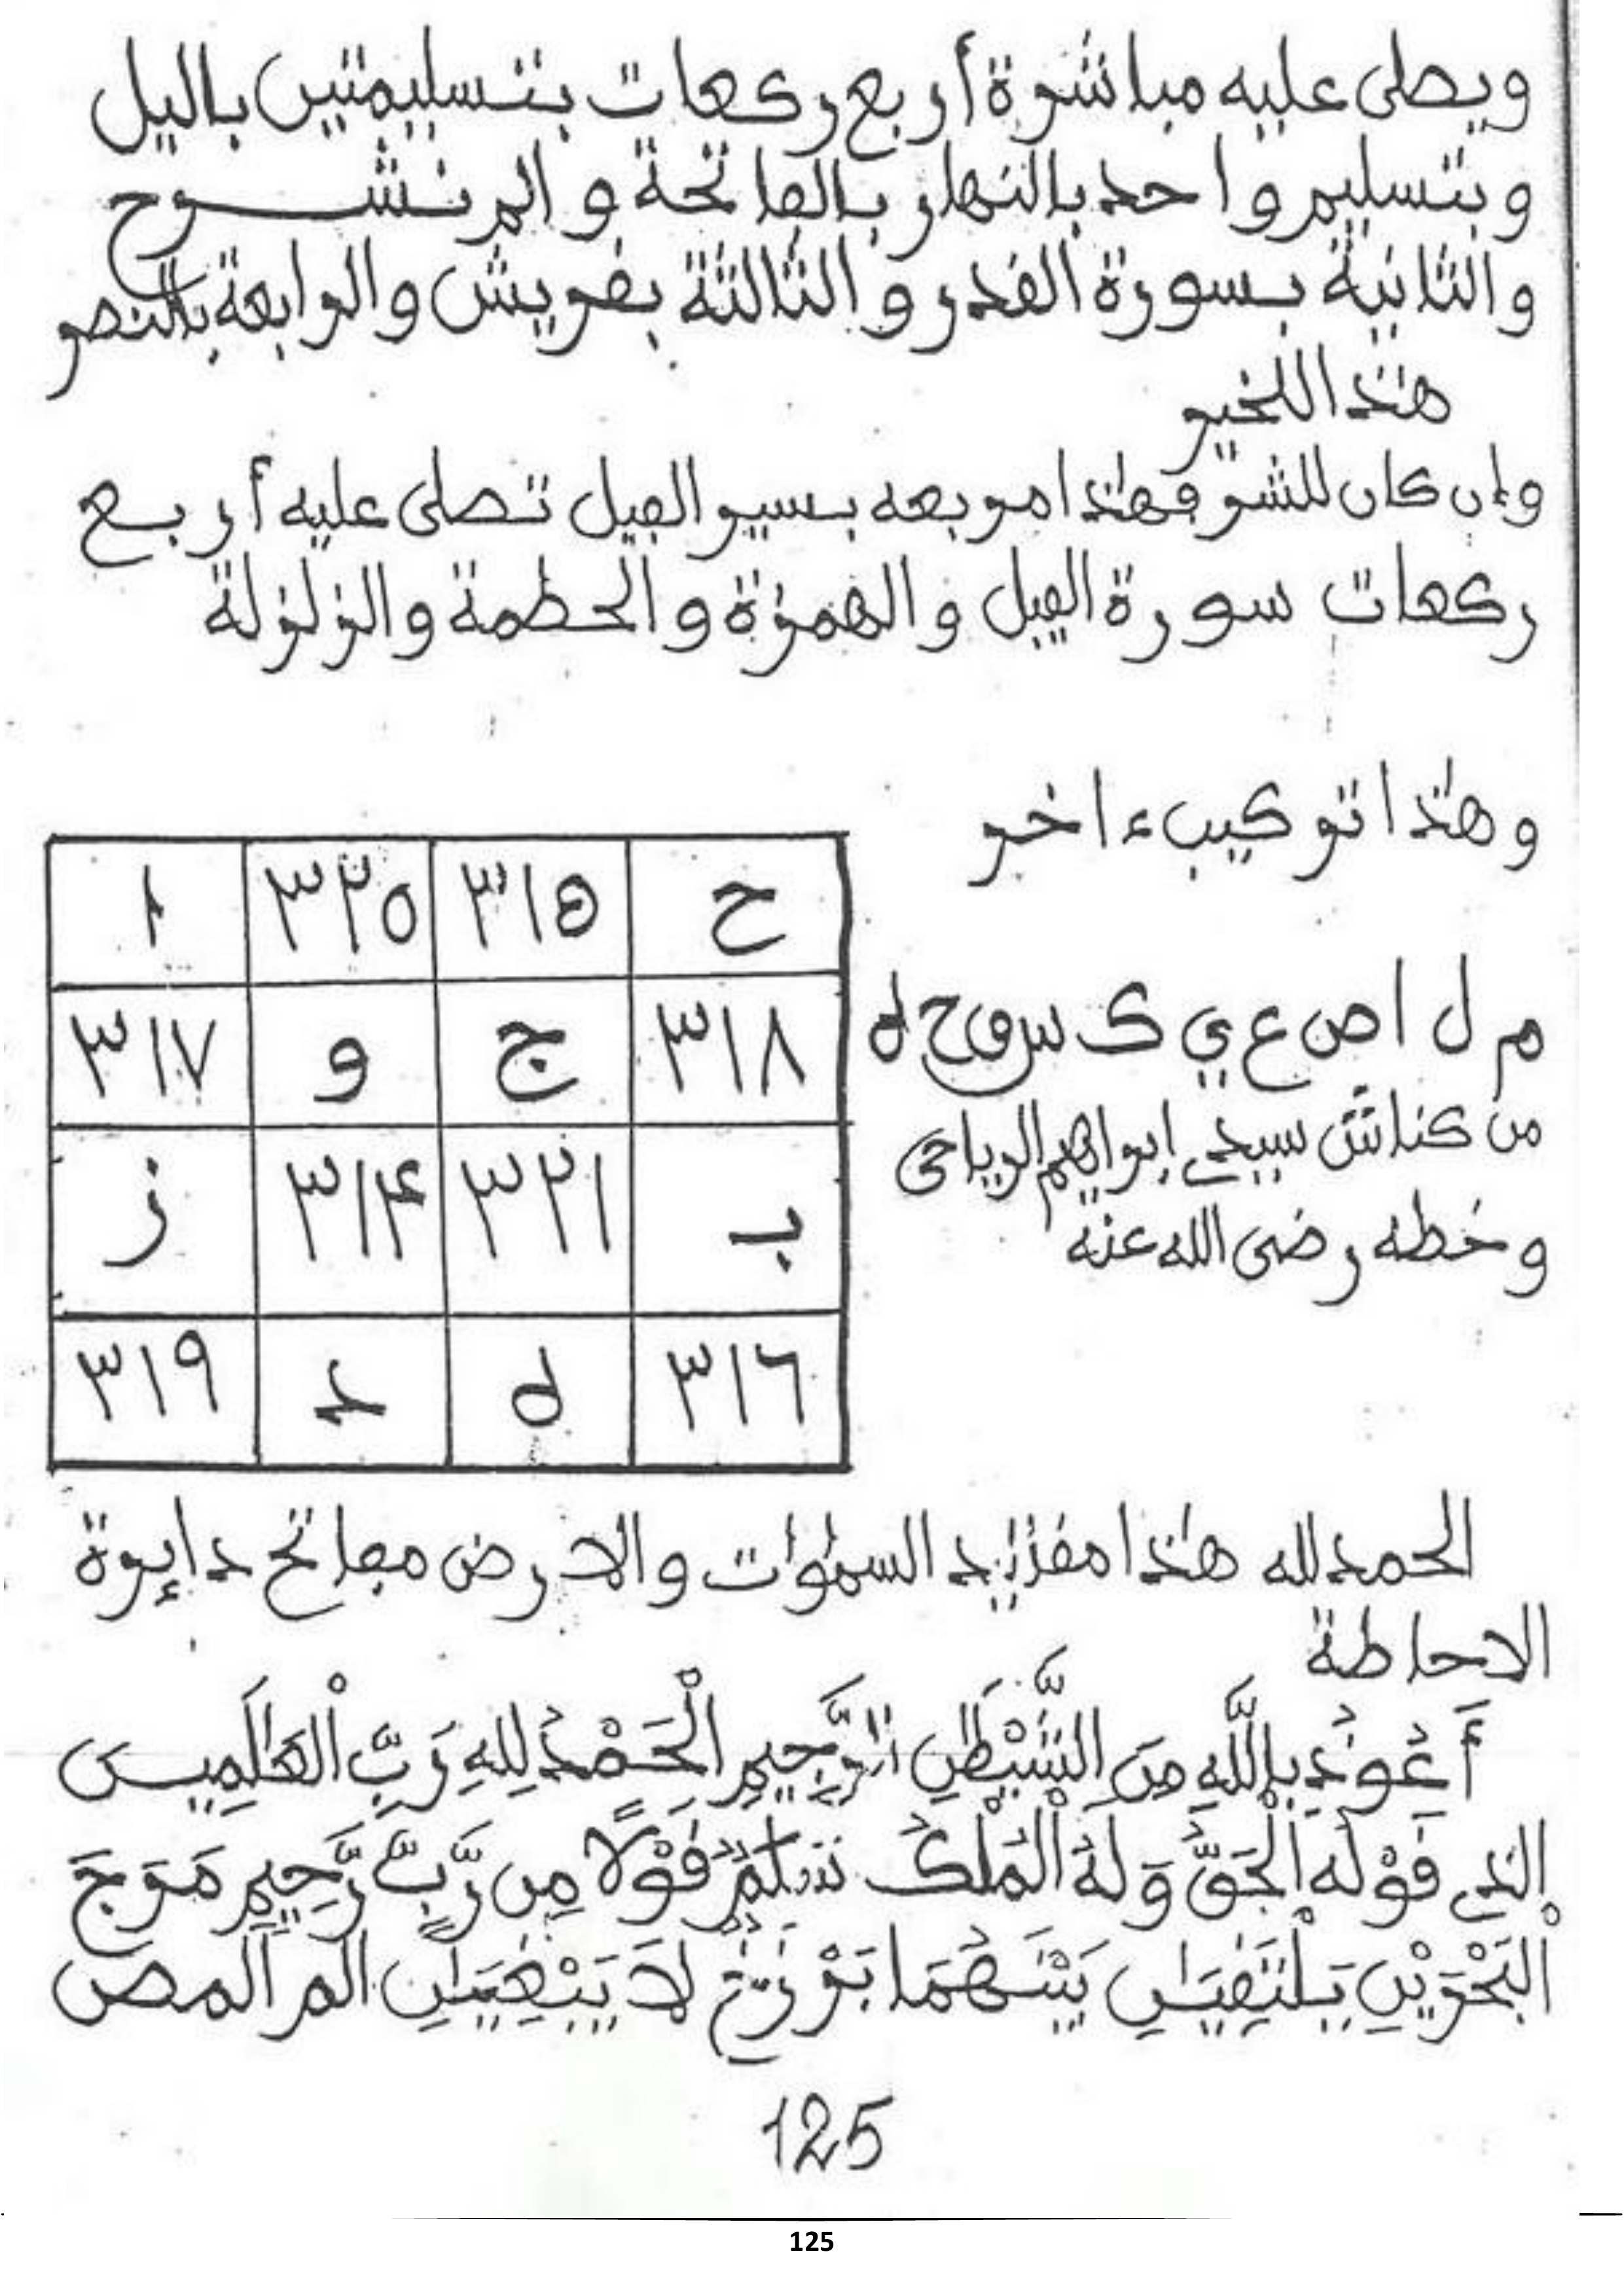 ويصلى عليه مباشرة أربع ركعات بتسليمتين باليل
وبتسليم واحد بالنهار بالفاتحة و الم نشـــرح
والثانية بسورة القدر و الثالثة بقريش والرابعة بالنصر
هٰذا للخير
وإن كان للشر فهٰذا مربعه بسير الفيل تصلى عليه أربع
ركعات سورة الفيل والهمزة والحطمة والزلزلة
وهٰذا تركيب ءاخر
ح ٣١٥ ٣٢٥ ١
م ل ا ص ع ي ك س ق ح ه
٣١٨ ج و ٣١٧
من كناش سيدي إبراهيم الرياحي
وخطه رضى الله عنه
ب ٣٢١ ٣١۴ ز
٣١٦ ه د ٣١٩
الحمد لله هٰذا مقٰليد السمٰوٰت والارض مفاتح دايرة
الاحاطة
أَعُوذُ بِاللَّهِ مِنَ الشَّيْطَٰنِ الرَّجِيمِ الْحَمْدُ لِلهِ رَبِّ الْعَٰلَمِيـنَ
الذي قَوْلُه الْحَقُّ وَلَهُ الْمُلْكُ سَلَٰمٌ قَوْلًا مِن رَّبٍّ رَّحِيمٍ مَرَجَ
الْبَحْرَيْنِ يَلْتَقِيَٰنِ بَيْنَهُمَا بَرْزَخٌ لَا يَبْغِيَٰنِ الم المص
125
125